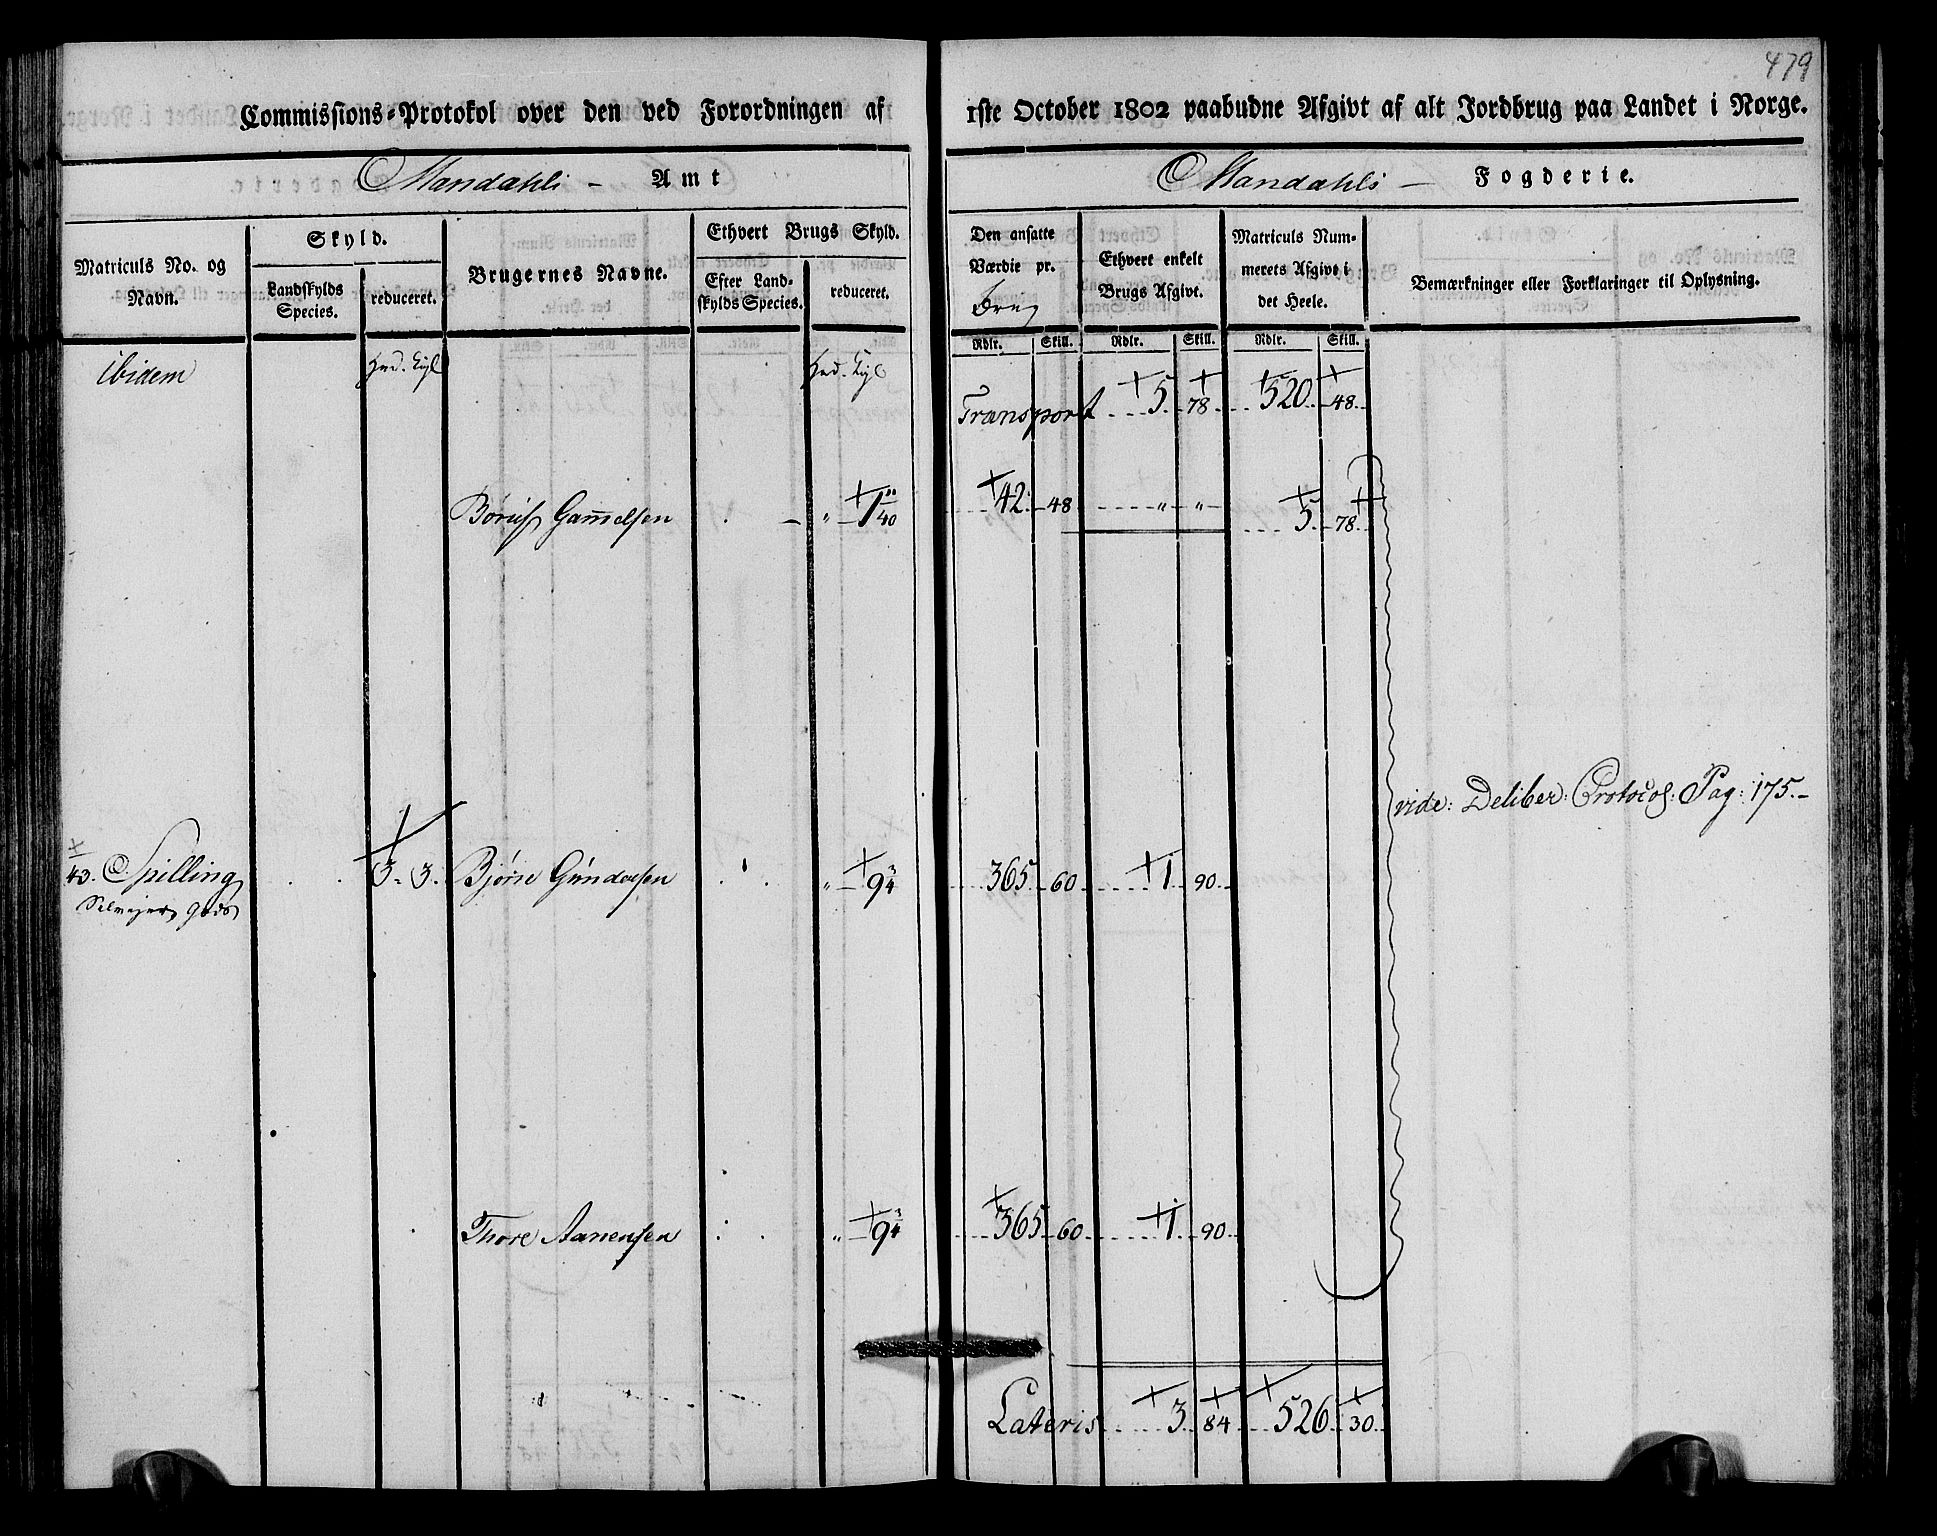 479
Commissions-Protokol over den ved Forordningen af 1ste October 1802 paabudne Afgivt af alt Jordbrug paa Landet i Norge.
Mandahls - Amt
Mandahls - Fogderie.
Matriculs No. og Navn.
Skyld.
Landskylds Species.
reduceret.
Brugernes Navne.
Ethvert Brugs Skyld.
Efter Landskylds Species.
reduceret.
Den ansatte Værdie pr.
Ethvert enkelt Brugs Afgivt.
Matriculs Nummerets Afgivt i det Heele.
Bemærkninger eller Forklaringer til Oplysning.
Rdlr. Skill. Rdlr. Skill. Rdlr. Skill.
ibidem
Transport 5. 78 520. 48.
Gammelsen 42. 48 " " 5. 78.
vide: Deliber: Protocol: Pag: 175.-
43. Spilling 3. 3. 9 3/4 365. 60 1. 90.
Gods
Thore Aanensen " 9 3/4 365. 60 1. 90.
Lateris 3. 84 526. 30.